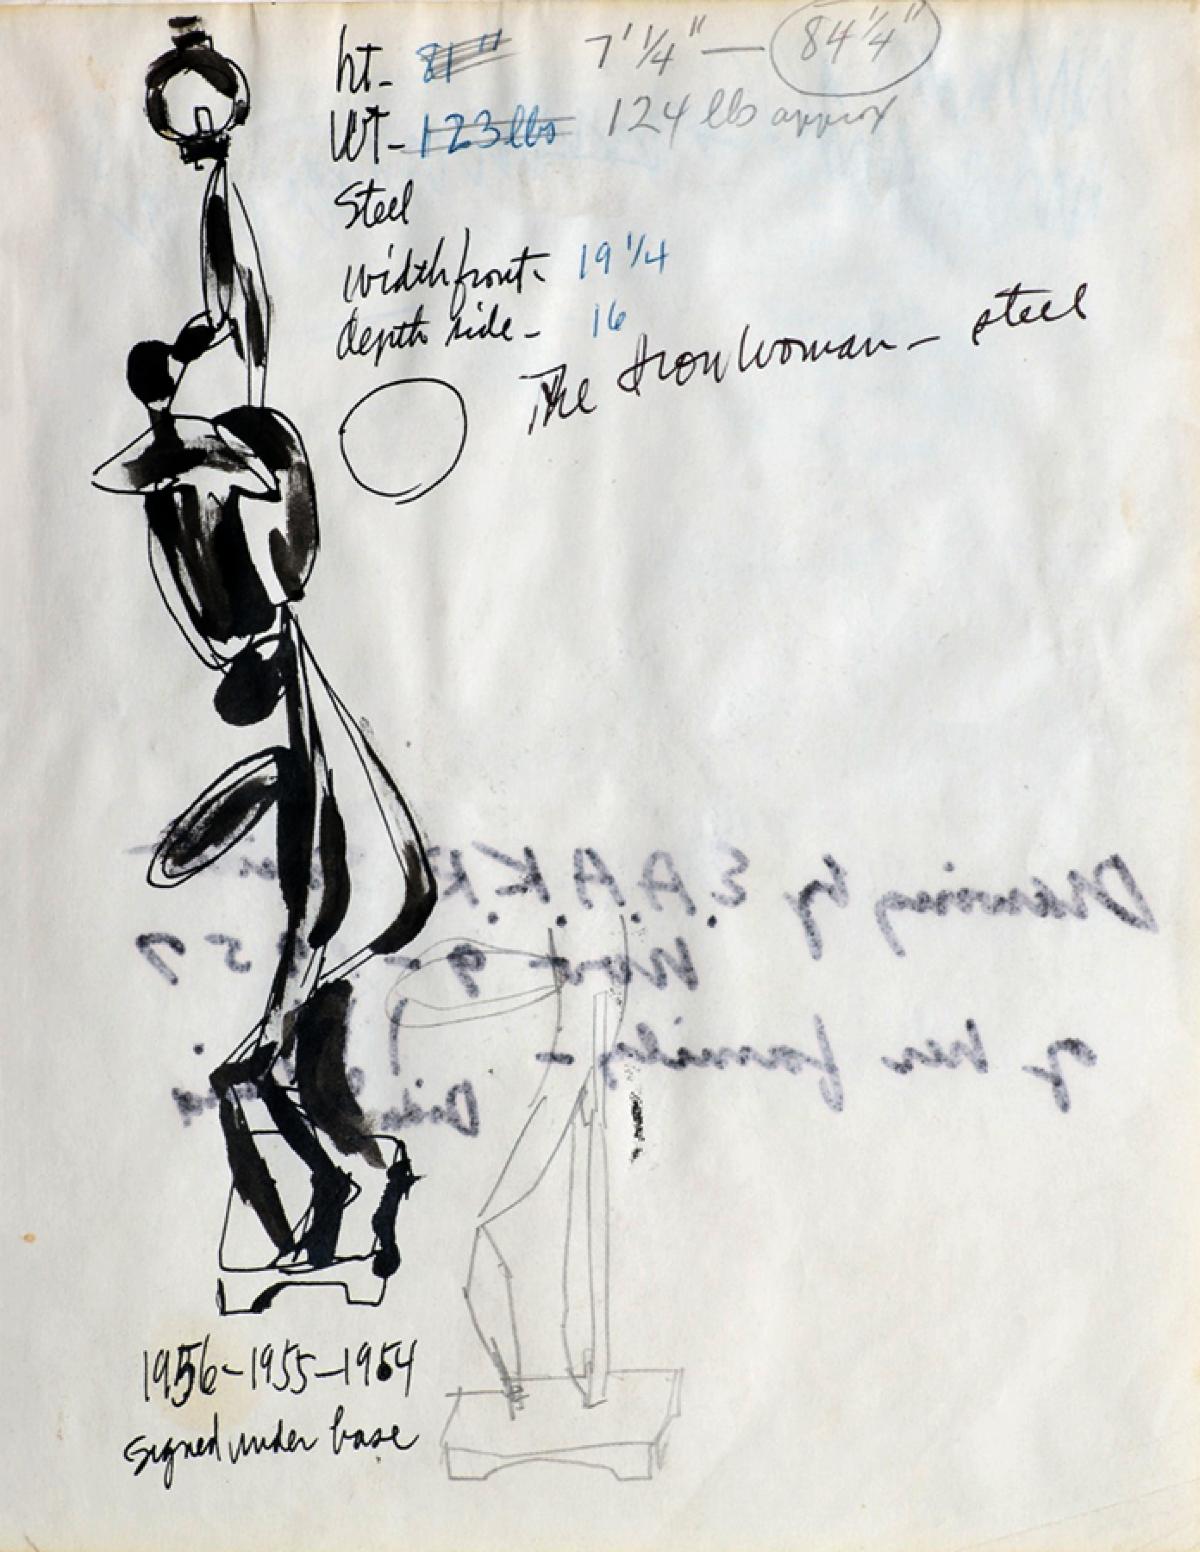 ht- 81" 7' 1/4" — 84 1/4"
Wt- 123 lbs 124 lbs approx
Steel
width front- 19 1/4
depth side- 16
The Iron Woman - steel
Drawing by E.A.A.K.R.
Nov - 9 - 1957
of her family -
1956-1955-1954
signed under base